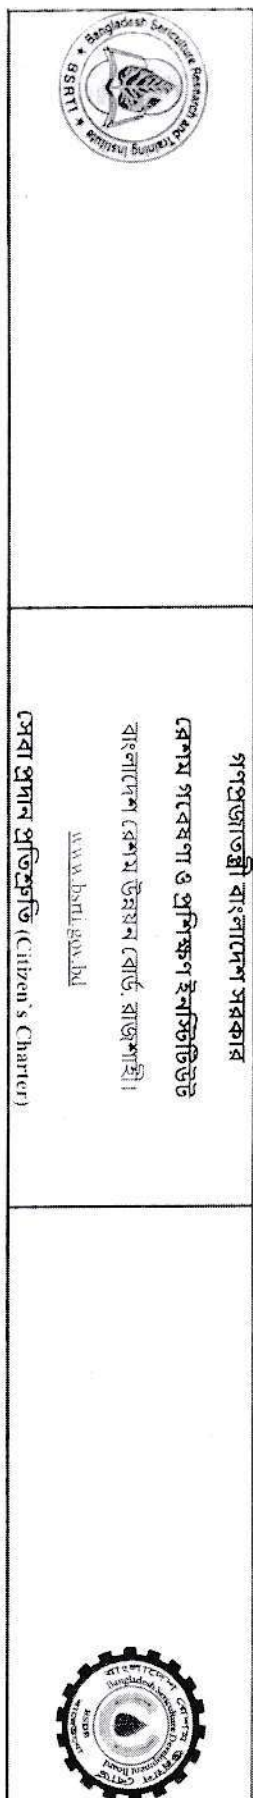 ★ Bangladesh Sericulture Research and Training Institute ★ BSRTI
গণপ্রজাতন্ত্রী বাংলাদেশ সরকার
রেশম গবেষণা ও প্রশিক্ষণ ইনস্টিটিউট
বাংলাদেশ রেশম উন্নয়ন বোর্ড, রাজশাহী।
www.bsrti.gov.bd
সেবা প্রদান প্রতিশ্রুতি (Citizen`s Charter)
বাংলাদেশ রেশম উন্নয়ন বোর্ড
Bangladesh Sericulture Development Board